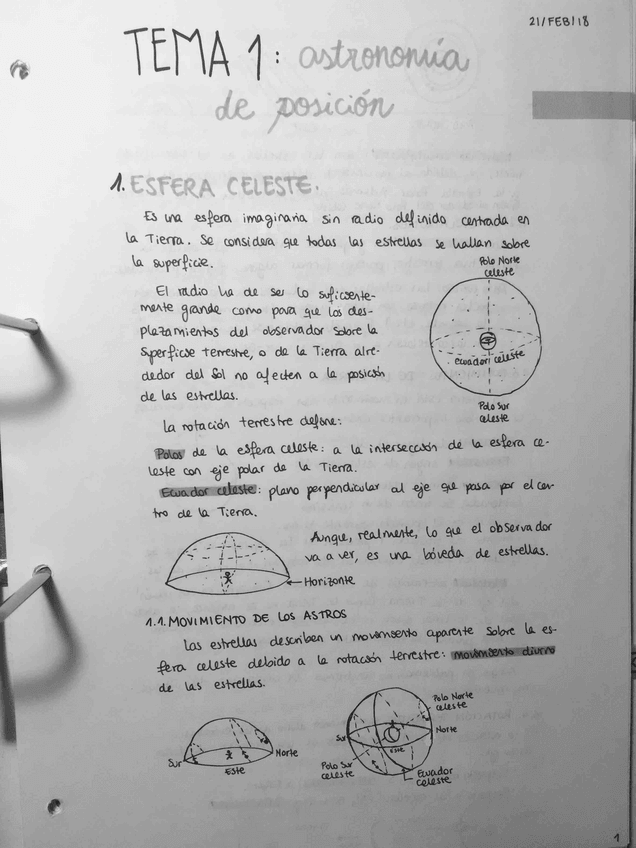 21/FEB/18
TEMA 1: astronomía
de posición
1. ESFERA CELESTE.
Es una esfera imaginaria sin radio definido centrada en
la Tierra. Se considera que todas las estrellas se hallan sobre
la superficie.
Polo Norte
celeste
El radio ha de ser lo suficiente-
mente grande como para que los des-
plazamientos del observador sobre la
superficie terrestre, o de la Tierra alre-
dedor del Sol no afecten a la posición
de las estrellas.
Ecuador celeste
Polo Sur
celeste
La rotación terrestre define:
Polos de la esfera celeste: a la intersección de la esfera ce-
leste con eje polar de la Tierra.
Ecuador celeste: plano perpendicular al eje que pasa por el cen-
tro de la Tierra.
Aunque, realmente, lo que el observador
va a ver, es una bóveda de estrellas.
Horizonte
1.1. MOVIMIENTO DE LOS ASTROS
Las estrellas describen un movimiento aparente sobre la es-
fera celeste debido a la rotación terrestre: movimiento diurno
de las estrellas.
Sur
Este
Norte
Polo Norte
celeste
Sur
Norte
Este
Polo Sur
celeste
Ecuador
celeste
1